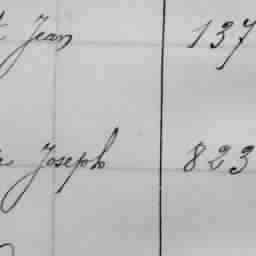 Jean 137
Joseph 823